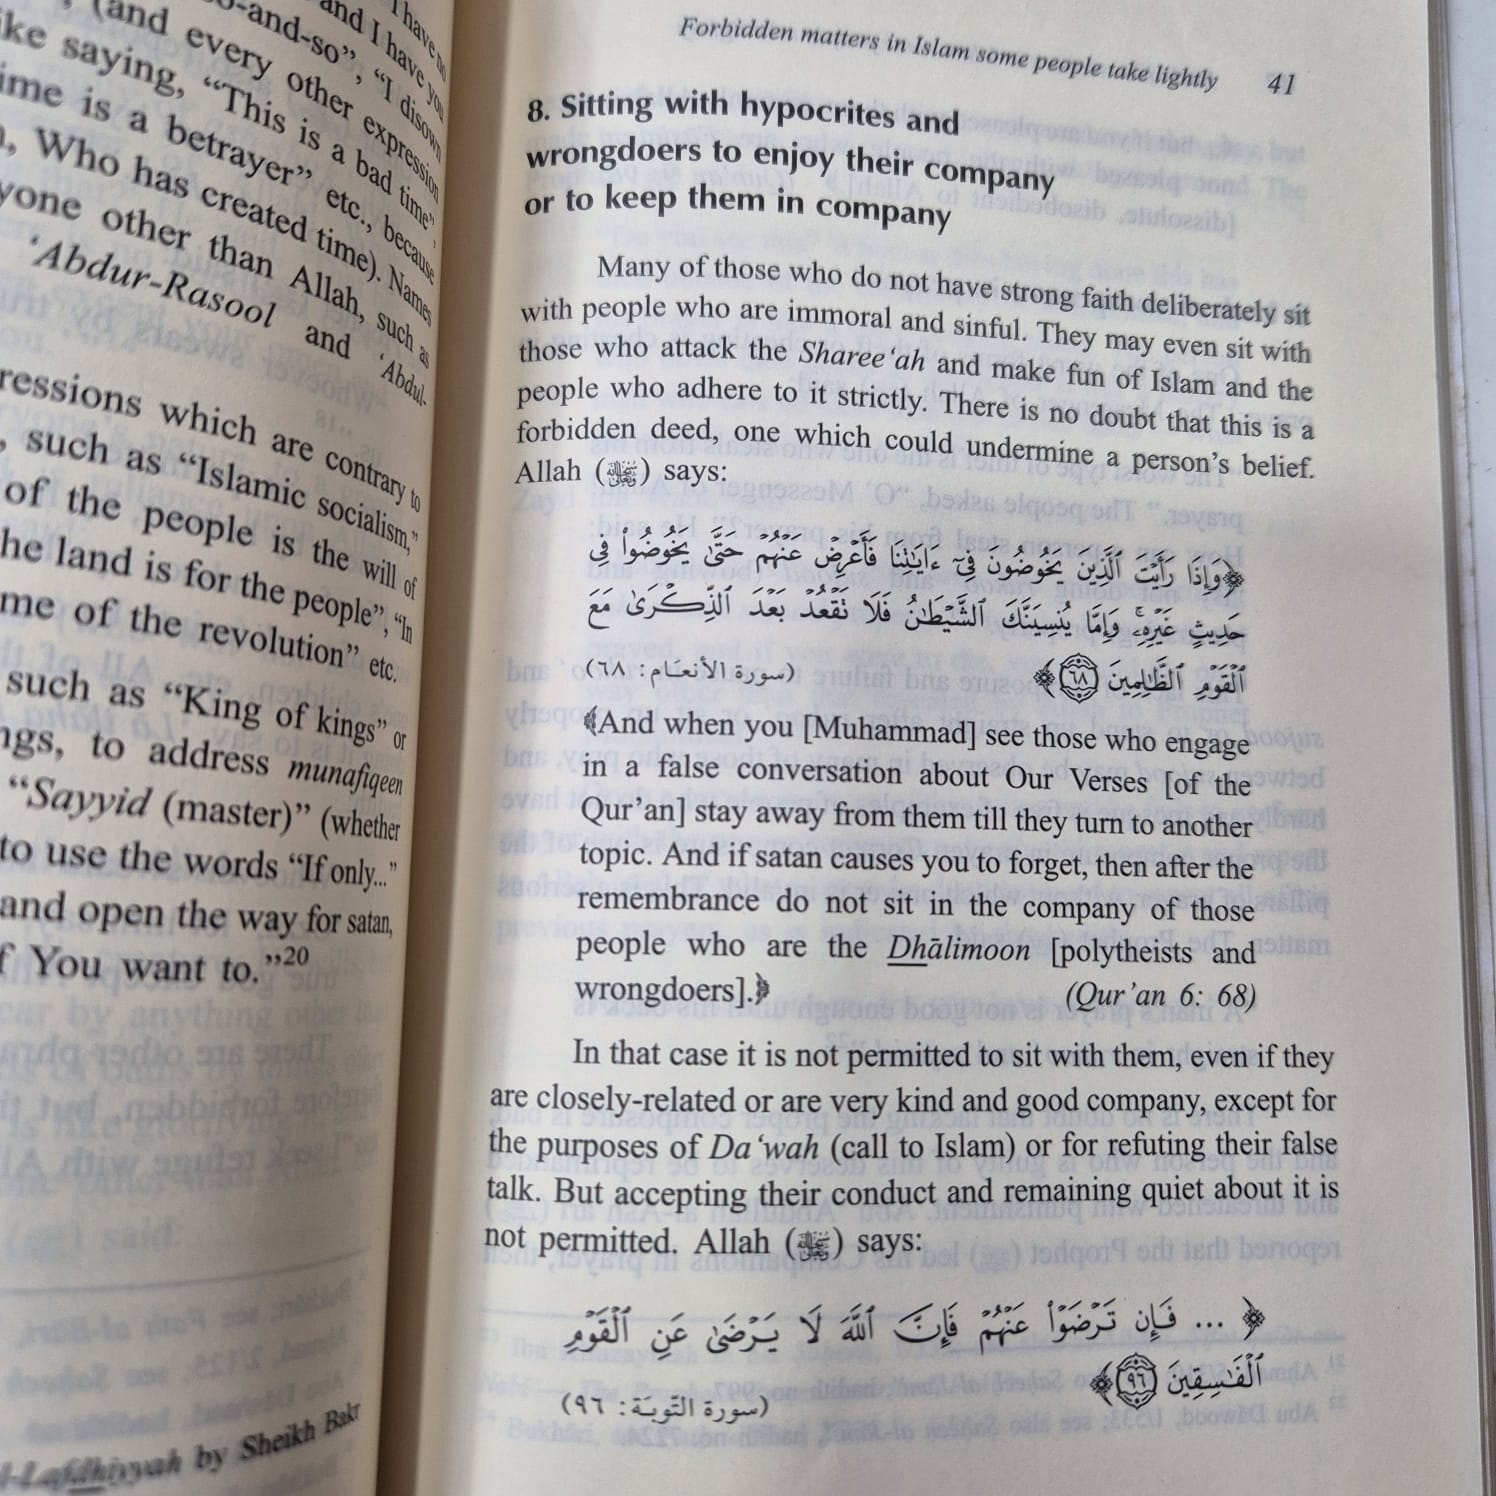 I have no
and I have you
so-and-so”, “I disown
(and every other expression
like saying, “This is a bad time”,
time is a betrayer” etc., because
Who has created time). Names
other than Allah, such as
‘Abdur-Rasool and ‘Abdul-
which are contrary to
such as “Islamic socialism,”
of the people is the will of
the land is for the people”, “In
of the revolution” etc.
such as “King of kings” or
to address munafiqeen
“Sayyid (master)” (whether
to use the words “If only...”
and open the way for satan,
You want to.”20
by Sheikh Bakr
Forbidden matters in Islam some people take lightly 41
8. Sitting with hypocrites and
wrongdoers to enjoy their company
or to keep them in company
Many of those who do not have strong faith deliberately sit
with people who are immoral and sinful. They may even sit with
those who attack the Sharee‘ah and make fun of Islam and the
people who adhere to it strictly. There is no doubt that this is a
forbidden deed, one which could undermine a person’s belief.
Allah () says:
﴿وَإِذَا رَأَيْتَ ٱلَّذِينَ يَخُوضُونَ فِىٓ ءَايَـٰتِنَا فَأَعْرِضْ عَنْهُمْ حَتَّىٰ يَخُوضُوا۟ فِى
حَدِيثٍ غَيْرِهِۦۚ وَإِمَّا يُنسِيَنَّكَ ٱلشَّيْطَـٰنُ فَلَا تَقْعُدْ بَعْدَ ٱلذِّكْرَىٰ مَعَ
ٱلْقَوْمِ ٱلظَّـٰلِمِينَ ٦٨﴾ (سورة الأنعـام: ٦٨)
﴾And when you [Muhammad] see those who engage
in a false conversation about Our Verses [of the
Qur’an] stay away from them till they turn to another
topic. And if satan causes you to forget, then after the
remembrance do not sit in the company of those
people who are the Dhālimoon [polytheists and
wrongdoers].﴿ (Qur’an 6: 68)
In that case it is not permitted to sit with them, even if they
are closely-related or are very kind and good company, except for
the purposes of Da‘wah (call to Islam) or for refuting their false
talk. But accepting their conduct and remaining quiet about it is
not permitted. Allah () says:
﴿ ... فَإِن تَرْضَوْا۟ عَنْهُمْ فَإِنَّ ٱللَّهَ لَا يَرْضَىٰ عَنِ ٱلْقَوْمِ
ٱلْفَـٰسِقِينَ ٩٦﴾ (سورة التوبـة: ٩٦)